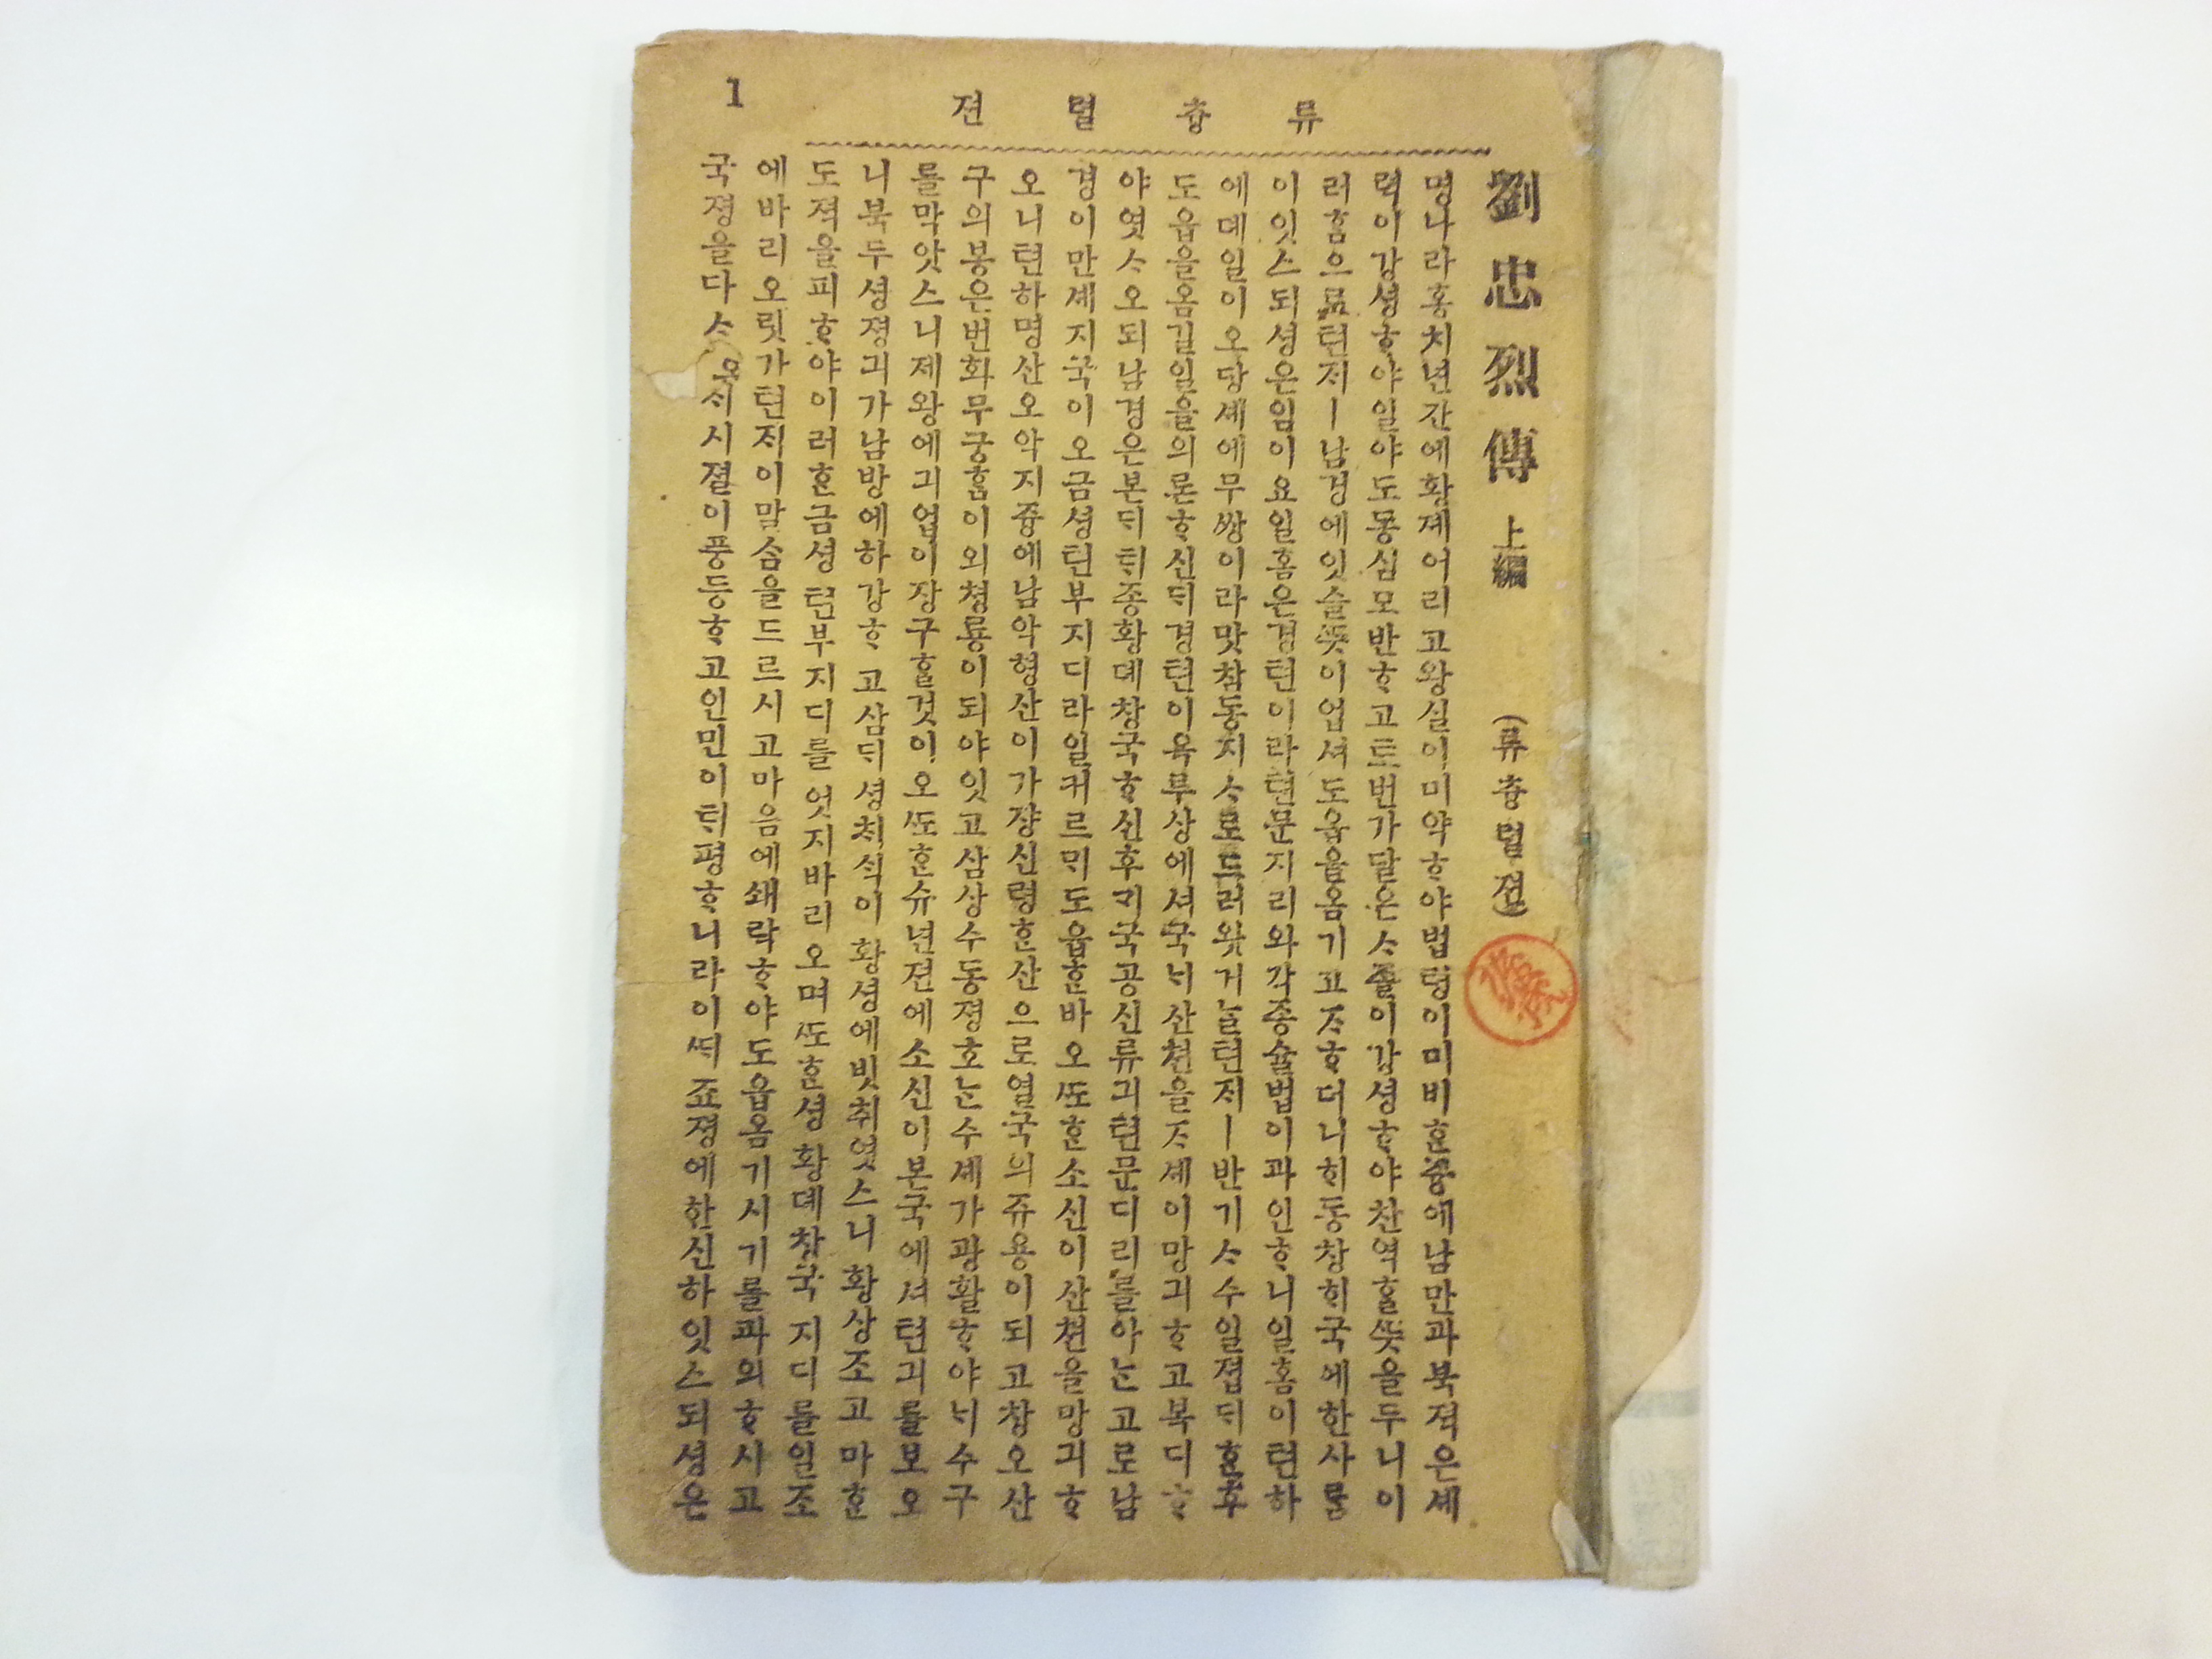 1
류츙렬젼
劉忠烈傳 上編 (류츙렬젼)
명나라홍치년간에황졔어리고왕실이미약ᄒᆞ야법령이미비ᄒᆞᆫ즁에남만과북젹은셰
력이강셩ᄒᆞ야일야도동심모반ᄒᆞ고토번가달은ᄉᆞ졸이강셩ᄒᆞ야찬역ᄒᆞᆯᄯᅳᆺ을두니이
러ᄒᆞᆷ으로텬ᄌᆡㅣ남경에잇슬ᄯᅳᆺ이업셔도읍을옴기고ᄌᆞᄒᆞ더니ᄒᆡ동창ᄒᆡ국에한사ᄅᆞᆷ
이잇스되셩은임이요일홈은경텬이라텬문지리와각종슐법이과인ᄒᆞ니일홈이텬하
에뎨일이오당셰에무쌍이라맛참동지ᄉᆞ로드러왓거늘텬ᄌᆡㅣ반기ᄉᆞ수일졉ᄃᆡᄒᆞᆫ후
도읍을옴길일을의론ᄒᆞ신ᄃᆡ경텬이옥루상에셔국ᄂᆡ산쳔을ᄌᆞ셰이망긔ᄒᆞ고복디ᄒᆞ
야엿ᄉᆞ오되남경은본ᄃᆡᄐᆡ종황뎨창국ᄒᆞ신후ᄀᆡ국공신류긔텬문디리를아ᄂᆞᆫ고로남
경이만셰지국이오금셩텬부지디라일커르ᄆᆡ도읍ᄒᆞᆫ바오ᄯᅩᄒᆞᆫ소신이산쳔을망긔ᄒᆞ
오니텬하명산오악지즁에남악형산이가쟝신령ᄒᆞᆫ산으로열국의쥬용이되고창오산
구의봉은번화무궁ᄒᆞᆷ이외쳥룡이되야잇고삼상수동졍호ᄂᆞᆫ수셰가광활ᄒᆞ야ᄂᆡ수구
를막앗스니제왕에긔업이장구ᄒᆞᆯ것이오ᄯᅩᄒᆞᆫ슈년젼에소신이본국에셔텬긔를보오
니북두셩졍긔가남방에하강ᄒᆞ고삼ᄐᆡ셩ᄎᆡ식이황셩에빗취엿스니황상조고마ᄒᆞᆫ
도젹을피ᄒᆞ야이러ᄒᆞᆫ금셩텬부지디를엇지바리오며ᄯᅩᄒᆞᆫ셩황뎨창국지디를일조
에바리오릿가텬ᄌᆡ이말ᄉᆞᆷ을드르시고마음에쇄락ᄒᆞ야도읍옴기시기를파의ᄒᆞ시고
국졍을다ᄉᆞ 시졀이풍등ᄒᆞ고인민이ᄐᆡ평ᄒᆞ니라이ᄯᆡ죠졍에한신하잇스되셩은